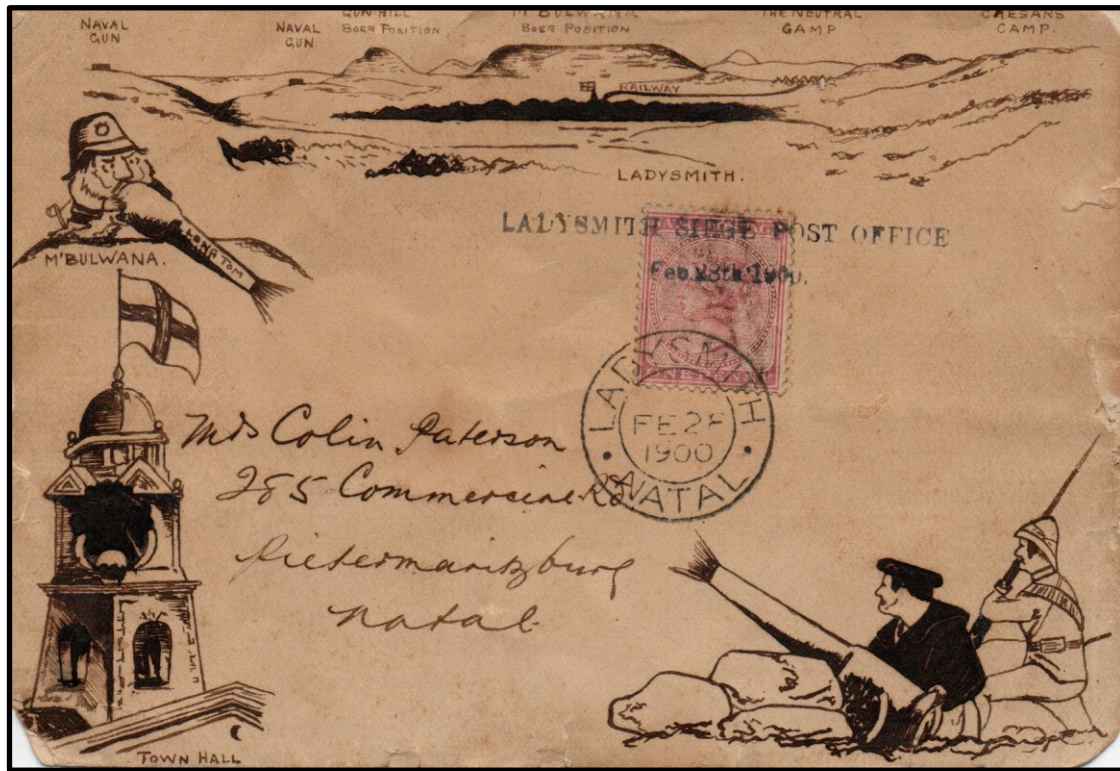 NAVAL
GUN
NAVAL
GUN
GUN HILL
BOER POSITION
M'BULWANA
BOER POSITION
THE NEUTRAL
CAMP
CAESARS
CAMP.
RAILWAY
LADYSMITH.
LONG TOM
M'BULWANA.
LADYSMITH SIEGE POST OFFICE
Feb. 28th 1900.
LADYSMITH
FE 28
1900
NATAL
Mrs Colin Paterson
285 Commercial Rd
Pietermaritzburg
Natal
TOWN HALL